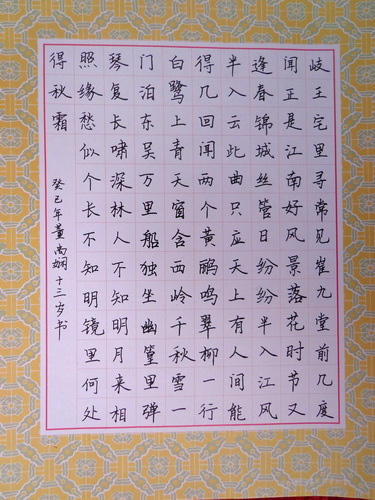 岐王宅里寻常见崔九堂前几度
闻正是江南好风景落花时节又
逢春锦城丝管日纷纷半入江风
半入云此曲只应天上有人间能
得几回闻两个黄鹂鸣翠柳一行
白鹭上青天窗含西岭千秋雪一
门泊东吴万里船独坐幽篁里弹
琴复长啸深林人不知明月来相
照缘愁似个长不知明镜里何处
得秋霜
癸巳年董娴十三岁书